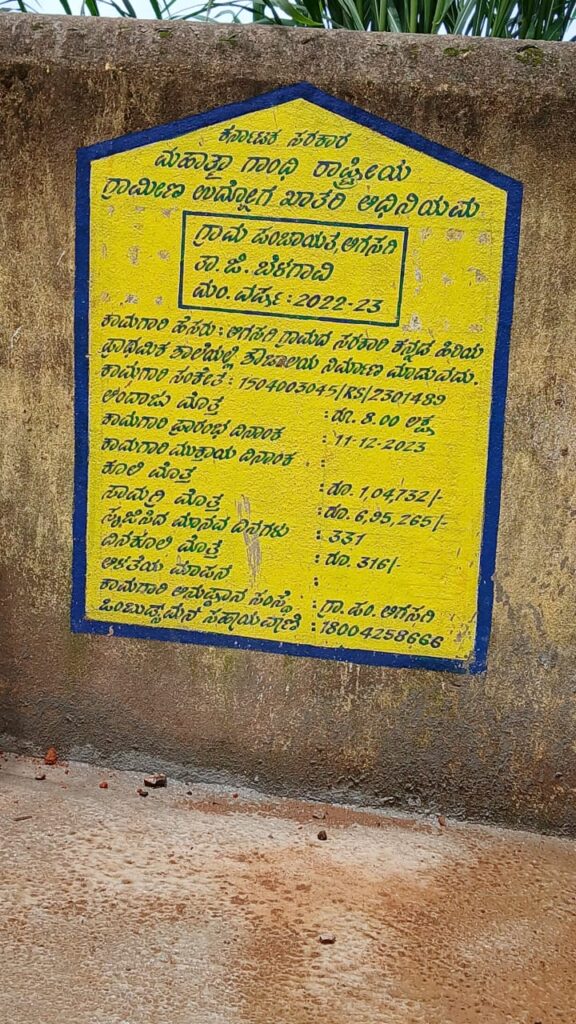 ಕರ್ನಾಟಕ ಸರಕಾರ
ಮಹಾತ್ಮಾ ಗಾಂಧಿ ರಾಷ್ಟ್ರೀಯ
ಗ್ರಾಮೀಣ ಉದ್ಯೋಗ ಖಾತರಿ ಅಧಿನಿಯಮ
ಗ್ರಾಮ ಪಂಚಾಯತ, ಅಗಸಗಿ
ತಾ. ಜಿ. ಬೆಳಗಾವಿ
ಮಂ. ವರ್ಷ : 2022-23
ಕಾಮಗಾರಿ ಹೆಸರು : ಅಗಸಗಿ ಗ್ರಾಮದ ಸರಕಾರಿ ಕನ್ನಡ ಹಿರಿಯ
ಪ್ರಾಥಮಿಕ ಶಾಲೆಯಲ್ಲಿ ಶೌಚಾಲಯ ನಿರ್ಮಾಣ ಮಾಡುವದು.
ಕಾಮಗಾರಿ ಸಂಕೇತ : 1504003045/RS/2301489
ಅಂದಾಜು ಮೊತ್ತ : ರೂ. 8.00 ಲಕ್ಷ
ಕಾಮಗಾರಿ ಪ್ರಾರಂಭ ದಿನಾಂಕ : 11-12-2023
ಕಾಮಗಾರಿ ಮುಕ್ತಾಯ ದಿನಾಂಕ :
ಕೂಲಿ ಮೊತ್ತ : ರೂ. 1,04,732/-
ಸಾಮಗ್ರಿ ಮೊತ್ತ : ರೂ. 6,95,265/-
ಸೃಜಿಸಿದ ಮಾನವ ದಿನಗಳು : 331
ದಿನಕೂಲಿ ಮೊತ್ತ : ರೂ. 316/-
ಅಳತೆಯ ಮಾಪನ :
ಕಾಮಗಾರಿ ಅನುಷ್ಠಾನ ಸಂಸ್ಥೆ : ಗ್ರಾ. ಪಂ. ಅಗಸಗಿ
ಒಂಬುಡ್ಸ್‌ಮನ್ ಸಹಾಯವಾಣಿ : 18004258666